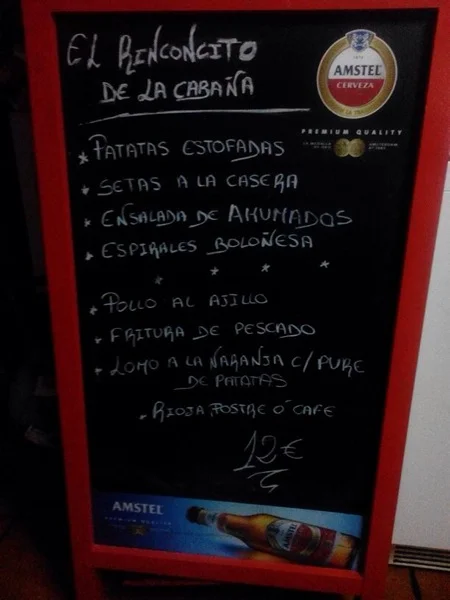 EL RINCONCITO
DE LA CABAÑA
AMSTEL
CERVEZA
PREMIUM QUALITY
* PATATAS ESTOFADAS
* SETAS A LA CASERA
* ENSALADA DE AHUMADOS
* ESPIRALES BOLOÑESA
* * * *
* POLLO AL AJILLO
* FRITURA DE PESCADO
* LOMO A LA NARANJA C/ PURE
DE PATATAS
* RIOJA, POSTRE O' CAFE
12€
AMSTEL
PREMIUM QUALITY
AMSTEL